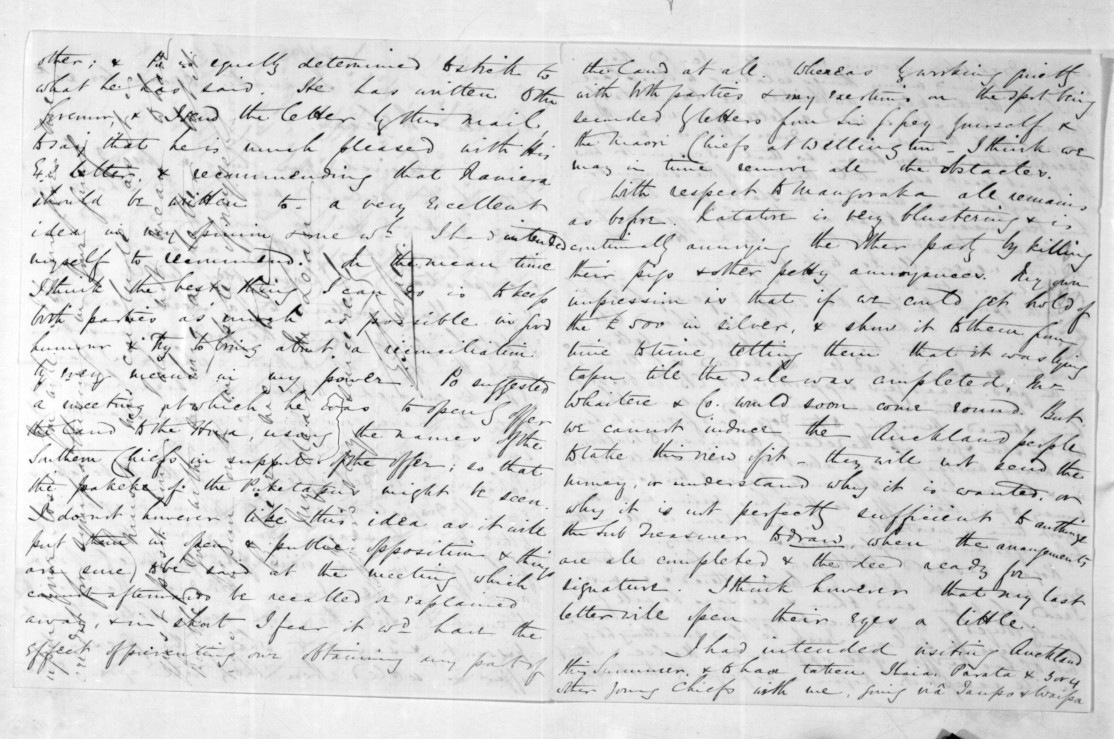 other; & Po is equally determined to stick to
what he has said. He has written to the
Governor, & I send the letter by this mail.
to say that he is much pleased with His
Ex's letter, & recommending that Ramera
should be written to - a very excellent
idea in my opinion & one wh. I had intended
myself to recommend. In the mean time
I think the best thing I can do is to keep
both parties as much as possible in good
humour & try to bring about a reconciliation
by every means in my power. Po suggested
a meeting at which he was to openly offer
the land to the Govr, using the names of the
Southern Chiefs in support of the offer; so that
the of the might be seen.
I don't however like this idea as it will
put them in open & public opposition & things
are sure to be said at the meeting which
cannot afterwds be recalled or explained
away, & in short I fear it wd have the
effect of preventing our obtaining any part of
the land at all. Whereas by working quietly
with both parties & my exertions on the spot being
seconded by letters from Sir G. Grey yourself &
the Maori Chiefs at Wellington I think we
may in time remove all the obstacles.
With respect to Mangoraka all remains
as before. Katatore is very blustering & is
continually annoying the other party by killing
their pigs & other petty annoyances. My own
impression is that if we could get hold of
the £500 in silver, & show it to them from
time to time, telling them that it was lying
tapu till the sale was completed,
Whaitere & Co. would soon come round. But
we cannot induce the Auckland people
to take this view of it - they will not send the
money, or understand why it is wanted, or
why it is not perfectly sufficient to authorize
the Sub Treasurer to draw, when the arrangements
are all completed & the deed ready for
signature. I think however that my last
letter will open their eyes a little.
I had intended visiting Auckland
this Summer, & to have taken Ihaia, Parata &
other young Chiefs with me, going viâ Taupo & Waipa